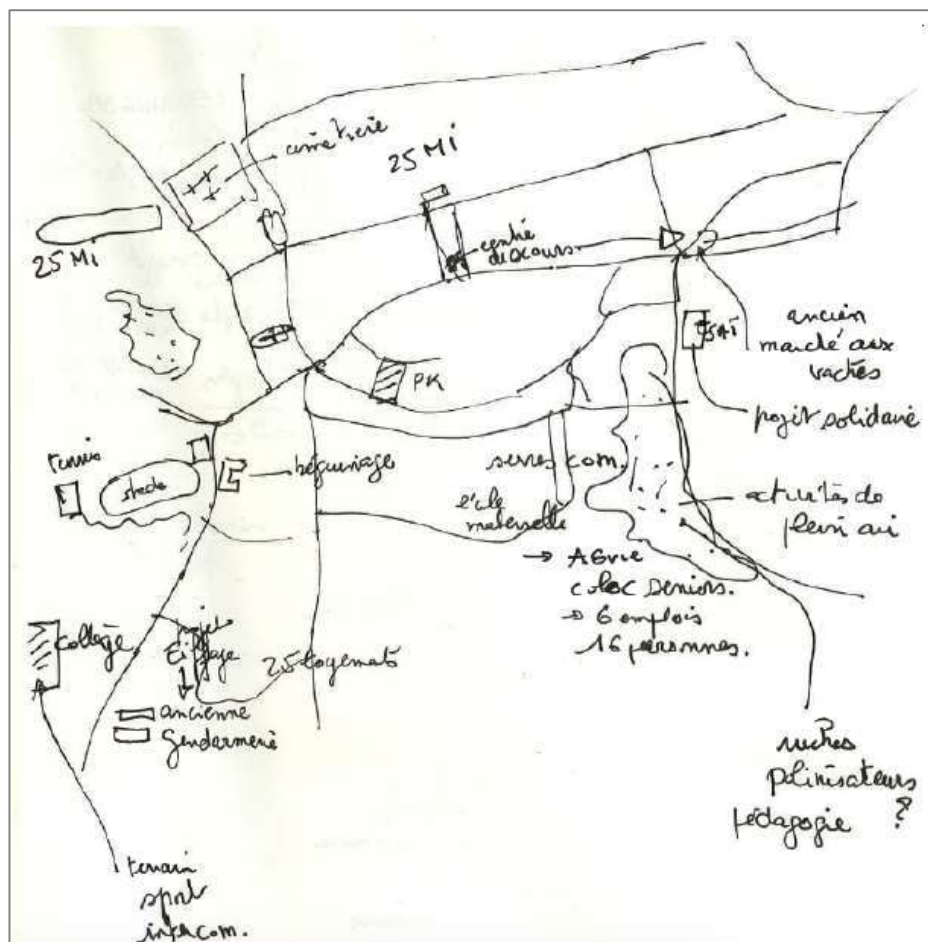 cimetière
25 Mi
25 Mi
centre
de secours.
PK
ancien
marché aux
vaches
projet solidaire
tennis
stade
béguinage
serres com.
école
maternelle
activités de
plein air
→ AGvie
coloc seniors.
→ 6 emplois
16 personnes.
collège
projet
Eiffage
25 logements
ancienne
Gendarmerie
ruches
polinisateurs
?
pédagogie
terrain
sport
intercom.